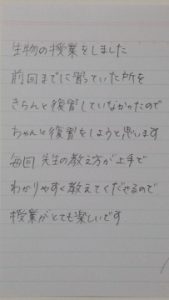 生物の授業をしました
前回までに習っていた所を
きちんと復習していなかったので
ちゃんと復習をしようと思います
毎回 先生の教え方が上手で
わかりやすく教えてくださるので
授業がとても楽しいです